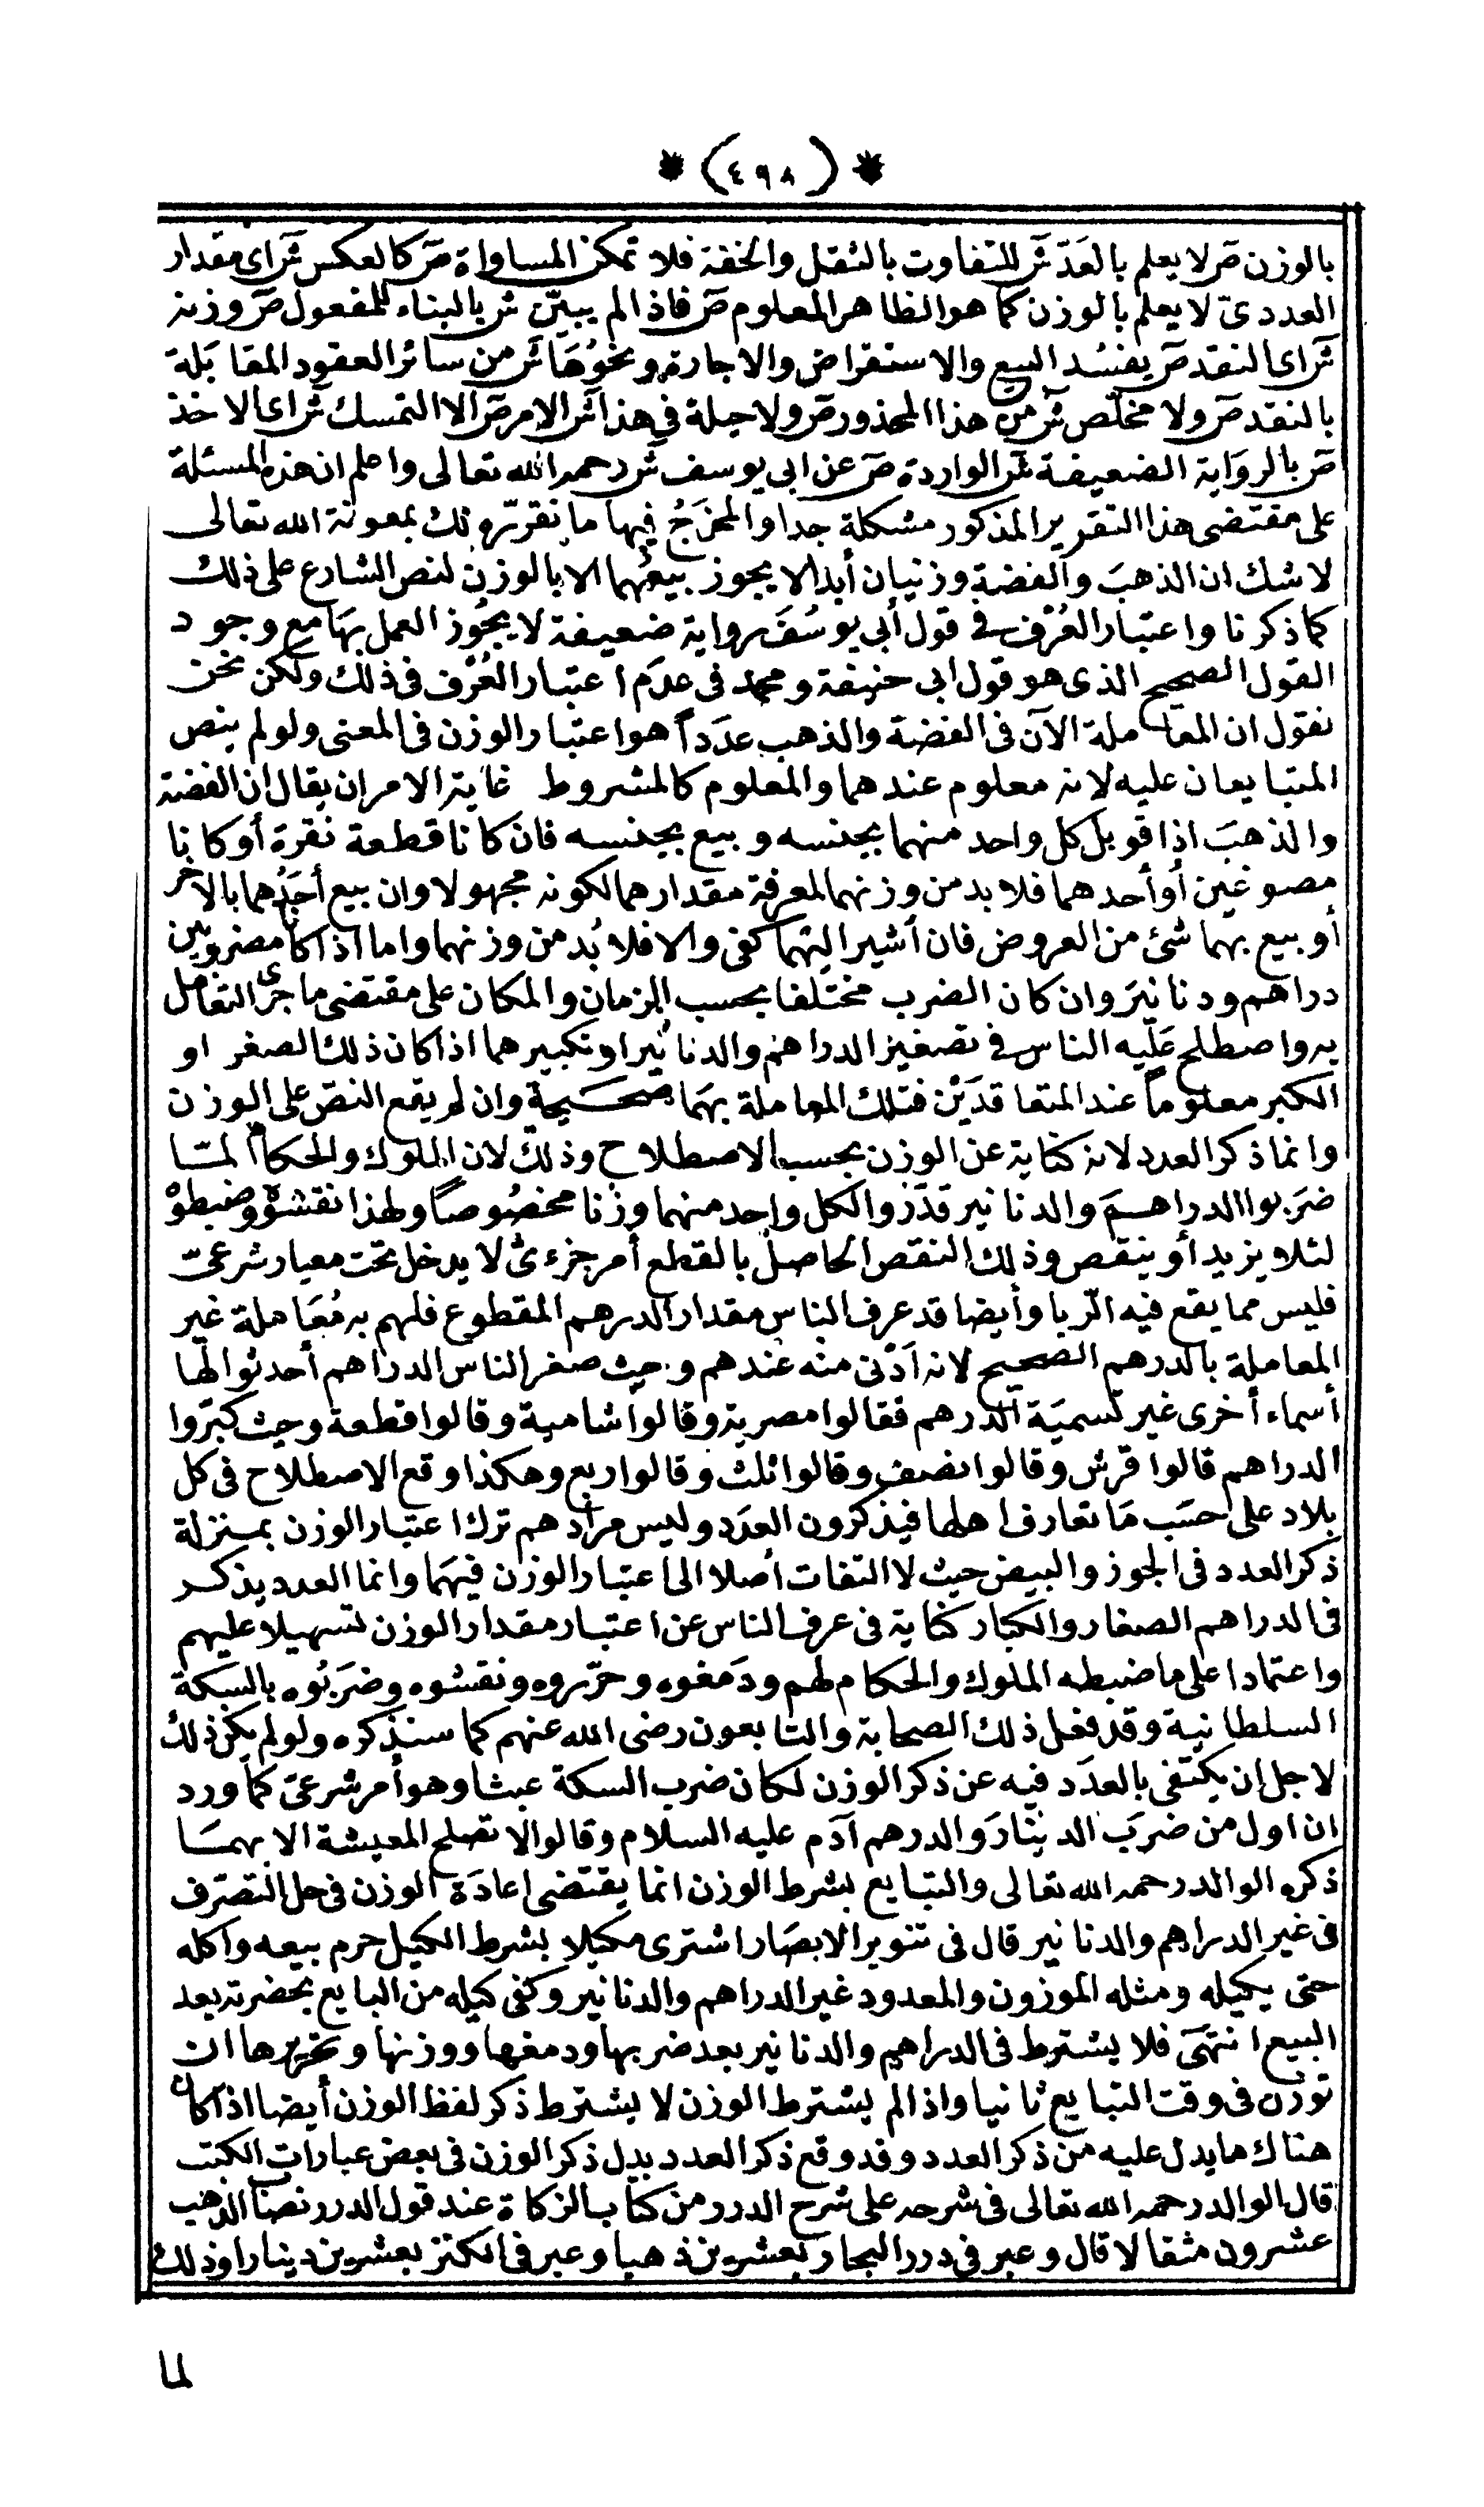 * (٤٩٨) *
بالوزن ص لا يعلم بالعدّ ش للتفاوت بالثقل والخفة فلا تمكن المساواة ص كالعكس ش أى مقدار
العددىّ لا يعلم بالوزن كما هو الظاهر المعلوم ص فاذا لم يبيّن ش بالبناء للمفعول ص وزنه
ش أى النقد ص يفسُد البيع والاستقراض والاجارة ونحوُهَا ش من سائر العقود المقابَلة
بالنقد ص ولا مخلّص ش من هذا المحذور ص ولا حيلة في هذا ش الامر ص الا التمسك ش أى الاخذ
ص بالروَاية الضعيفة ش الواردة ص عن ابى يوسف ش رحمه الله تعالى واعلم ان هذه المسئلة
على مقتضى هذا التقرير المذكور مشكلة جدا والمخرَجُ فيها ما نقرّره لك بمعونة الله تعالى
لا شك ان الذهبَ والفضة وزنيان أبدا لا يجوز بيعُهما الا بالوزن لنص الشارع على ذلك
كما ذكرنا واعتبار العُرْف في قول أبي يوسُفَ رواية ضعيفة لا يجُوز العمل بهَا مع وجود
القول الصحيح الذى هو قول ابى حنيفة ومحمد فى عدَم اعتبار العُرْف فى ذلك ولكن نحن
نقول ان المعاملة الآن فى الفضة والذهب عدَداً هو اعتبار الوزن فى المعنى ولو لم ينص
المتبايعان عليه لانه معلوم عندهما والمعلوم كالمشروط غاية الامر ان يقال ان الفضة
والذهبَ اذا قوبل كل واحد منهما بجنسه وبيع بجنسه فان كانا قطعة نقرة أو كانا
مصوغين أو أحدهما فلا بد من وزنهما لمعرفة مقدارهما لكونه مجهولا وان بيع أحدُهما بالآخر
أو بيع بهما شئ من العروض فان أشير اليهما كفى والا فلا بُد من وزنهما واما اذا كانا مضروبين
دراهم ودنانيرَ وان كان الضرب مختلفا بحسب الزمان والمكان على مقتضى ما جرى التعامل
به واصطلح عَليه الناس في تصغير الدراهم والدنانير او تكبيرهما اذا كان ذلك الصغر او
الكبر معلوماً عند المتعاقدَيْن فتلك المعاملة بهَما صحَيحة وان لم يقع النصّ على الوزن
وانما ذكر العدد لانه كناية عن الوزن بحسب الاصطلاح وذلك لان الملوك والحكام لمّا
ضرَبوا الدراهمَ والدنانير قدّروا لكل واحد منهما وزنا مخصُوصاً ولهذا نقشوْه وضبطوْه
لئلا يزيد أو ينقص وذلك النقص الحاصل بالقطع أمر جزءىّ لا يدخل تحت معيار شرعىّ
فليس مما يقع فيه الرّبا وأيضا قد عرف الناس مقدار الدرهم المقطوع فلهم به مُعَاملة غير
المعاملة بالدرهم الصحيح لانه اَدْنى منه عندهم وحيث صغر الناس الدراهم أحدثوا لها
أسماء أخرى غير تسميَة الدرهم فقالوا مصرية وقالوا شامية وقالوا قطعة وحيث كبّروا
الدراهم قالوا قرش وقالوا نصف وقالوا ثلث وقالوا ربع وهكذا وقع الاصطلاح فى كل
بلاد على حسَب مَا تعارف اهلها فيذكرون العدَد وليس مرادهم ترك اعتبار الوزن بمنزلة
ذكر العدد فى الجوز والبيض حيث لا التفات أصلا الى اعتبار الوزن فيهَما وانما العدد يذكر
فى الدراهم الصغار والكبار كناية فى عرف الناس عن اعتبار مقدار الوزن تسهيلا عليهم
واعتمادا على ما ضبطه الملوك والحكام لهم ودَمغوه وحرّروه ونقشوه وضرَبُوه بالسكة
السلطانية وقد فعل ذلك الصحابة والتابعون رضى الله عنهم كما سنذكره ولو لم يكن ذلك
لاجل ان يكتفى بالعدَد فيه عن ذكر الوزن لكان ضرب السكة عبثا وهو أمر شرعىّ كما ورد
ان اول من ضرَبَ الدينارَ والدرهم آدَم عليه السلام وقالوا لا تصلح المعيشة الا بهمَا
ذكره الوالد رحمه الله تعالى والتبايع بشرط الوزن انما يقتضى اعادَة الوزن فى حل التصرّف
فى غير الدراهم والدنانير قال فى تنوير الابصَار اشترى مكيلا بشرط الكيل حرم بيعه واكله
حتى يكيله ومثله الموزون والمعدود غير الدراهم والدنانير وكفى كيله من البايع بحضرته بعد
البيع انتهَى فلا يشترط فى الدراهم والدنانير بعد ضربها ودمغها ووزنها وتحريرها ان
توزن فى وقت التبايع ثانيا واذا لم يشترط الوزن لا يشترط ذكر لفظ الوزن أيضا اذا كان
هناك ما يدل عليه من ذكر العدد وقد وقع ذكر العدد بدل ذكر الوزن فى بعض عبارات الكتب
قال الوالد رحمه الله تعالى فى شرحه على شرح الدرر من كتاب الزكاة عند قول الدرر نصاب الذهب
عشرون مثقالا قال وعبر فى درر البحار بعشرين ذهبا وعبر فى الكنز بعشرين دينارا وذلك
لما